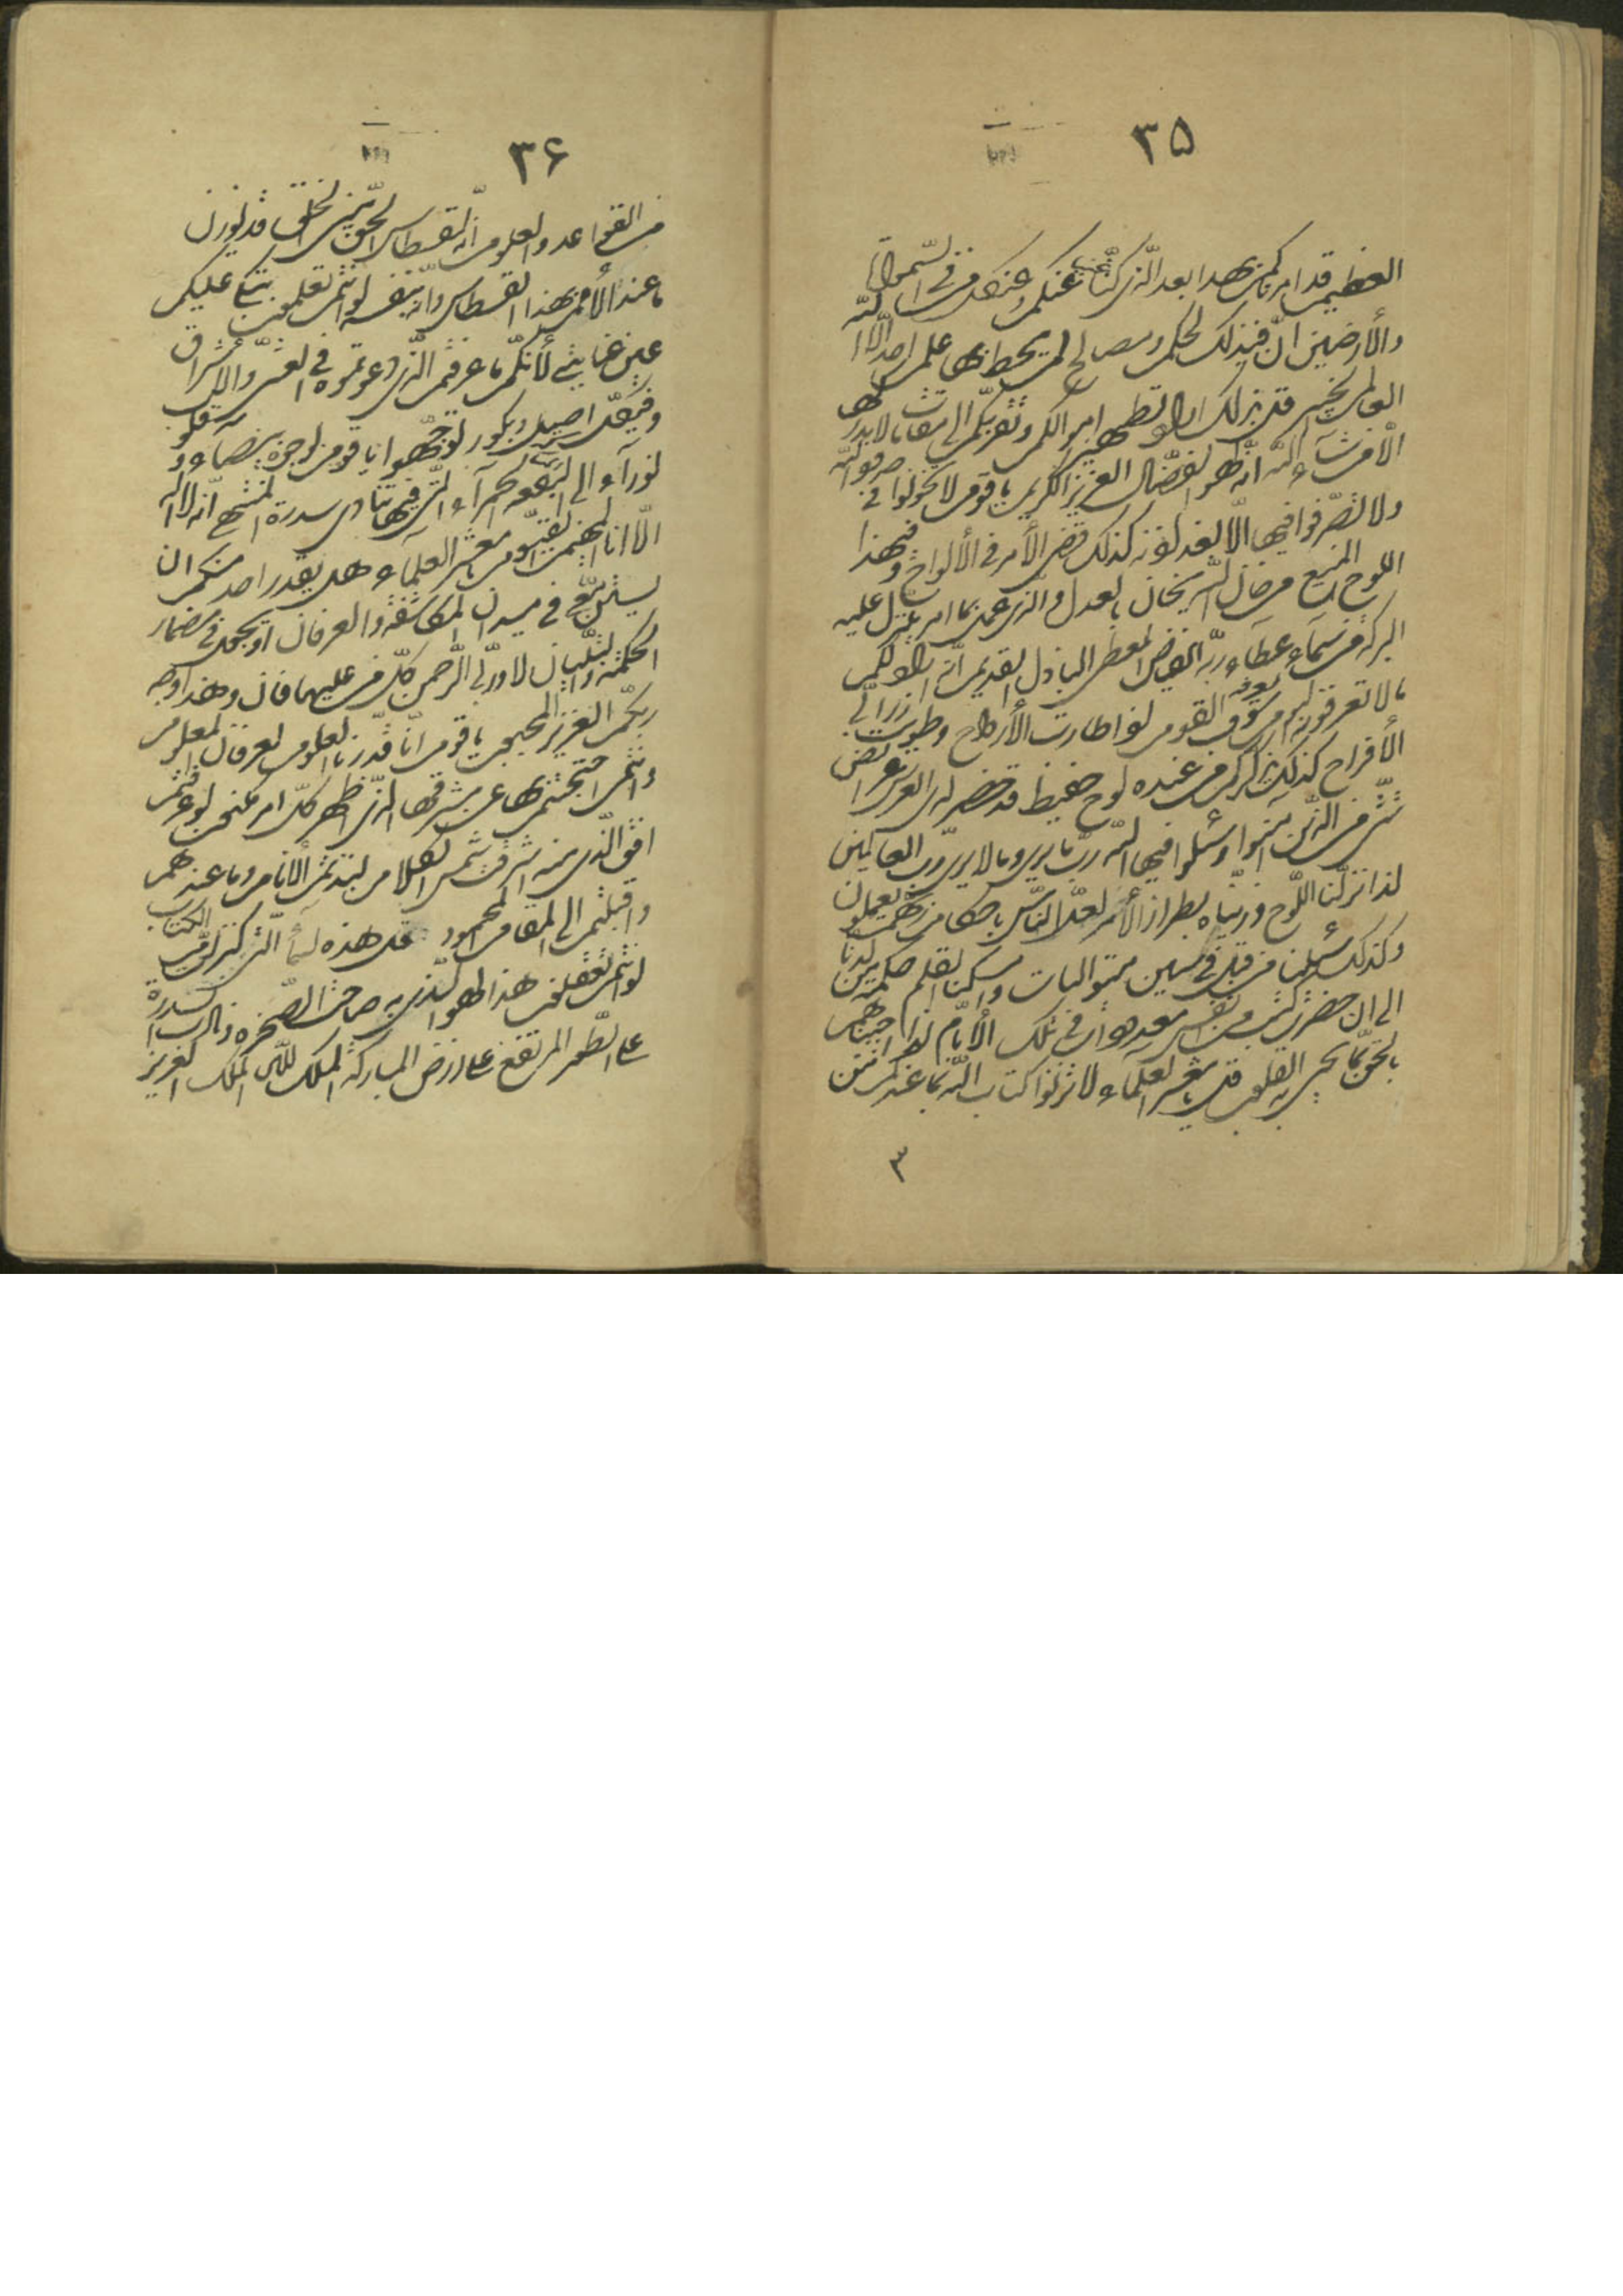 ۳۵
العظيم قد امرناكم بهذا بعد الّذى كنّا غنيّاً عنكم و عن كلّ من فى السّموات
والأرضين انّ فى ذلك لحكم ومصالح لم يحط بها علم احد الّا الله
العالم الخبير قل بذلك اراد تطهير اموالكم وتقرّبكم الى مقامات لا يدركها
الّا من شآء الله انّه لهو الفضّال العزيز الكريم يا قوم لا تخونوا فى حقوق الله
ولا تصرّفوا فيها الّا بعد اذنه كذلك قضى الأمر فى الألواح و فى هذا
اللوح المنيع من خان الله يخان بالعدل والّذى عمل بما امر ينزل عليه
البركة من سمآء عطآء ربّه الفيّاض المعطى الباذل القديم انّه اراد لكم
ما لا تعرفونه اليوم سوف يعرفه القوم اذا طارت الأرواح وطويت زرابىّ
الأفراح كذلك يذكركم من عنده لوح حفيظ قد حضرت لدى العرش عرائض
شتّى من الّذين آمنوا وسئلوا فيها الله ربّ ما يرى وما لا يرى ربّ العالمين
لذا نزّلنا اللّوح وزيّنّاه بطراز الأمر لعلّ النّاس باحكام ربّهم يعملون
وكذلك سئلنا من قبل فى سنين متواليات وامسكنا القلم حكمة من لدنّا
الى ان حضرت كتب من انفس معدودات فى تلك الأيّام لذا اجبناهم
بالحقّ بما تحيى به القلوب قل يا معشر العلمآء لا تزنوا كتاب الله بما عندكم
۳
۳۶
من القواعد والعلوم انّه لقسطاس الحقّ بين الخلق قد يوزن
ما عند الأمم بهذا القسطاس وانّه بنفسه لو انتم تعلمون تبكى عليكم
عين عنايتى لأنّكم ما عرفتم الّذى دعوتموه فى العشىّ والاشراق
وفى كلّ اصيل وبكور توجّهوا يا قوم بوجوه بيضآء وقلوب
نورآء الى البقعة الحمرآء الّتى فيها تنادى سدرة المنتهى انّه لا اله
الّا انا المهيمن القيّوم يا معشر العلمآء هل يقدر احد منكم ان
يستنّ معى فى ميدان المكاشفة والعرفان او يجول فى مضمار
الحكمة والتّبيان لا وربّى الرّحمن كلّ من عليها فان وهذا وجه
ربّكم العزيز المحبوب يا قوم انّا قدّرنا العلوم لعرفان المعلوم
وانتم احتجبتم بها عن مشرقها الّذى به ظهر كلّ امر مكنون لو عرفتم
افق الّذى منه اشرقت شمس الكلام لنبذتم الأنام وما عندهم
واقبلتم الى المقام المحمود قل هذه لسمآء الّتى كنز امّ الكتاب
لو انتم تعقلون هذا لهو الّذى به صاحت الصّخرة ونادت السّدرة
على الطّور المرتفع على الارض المباركة الملك لله الملك العزيز